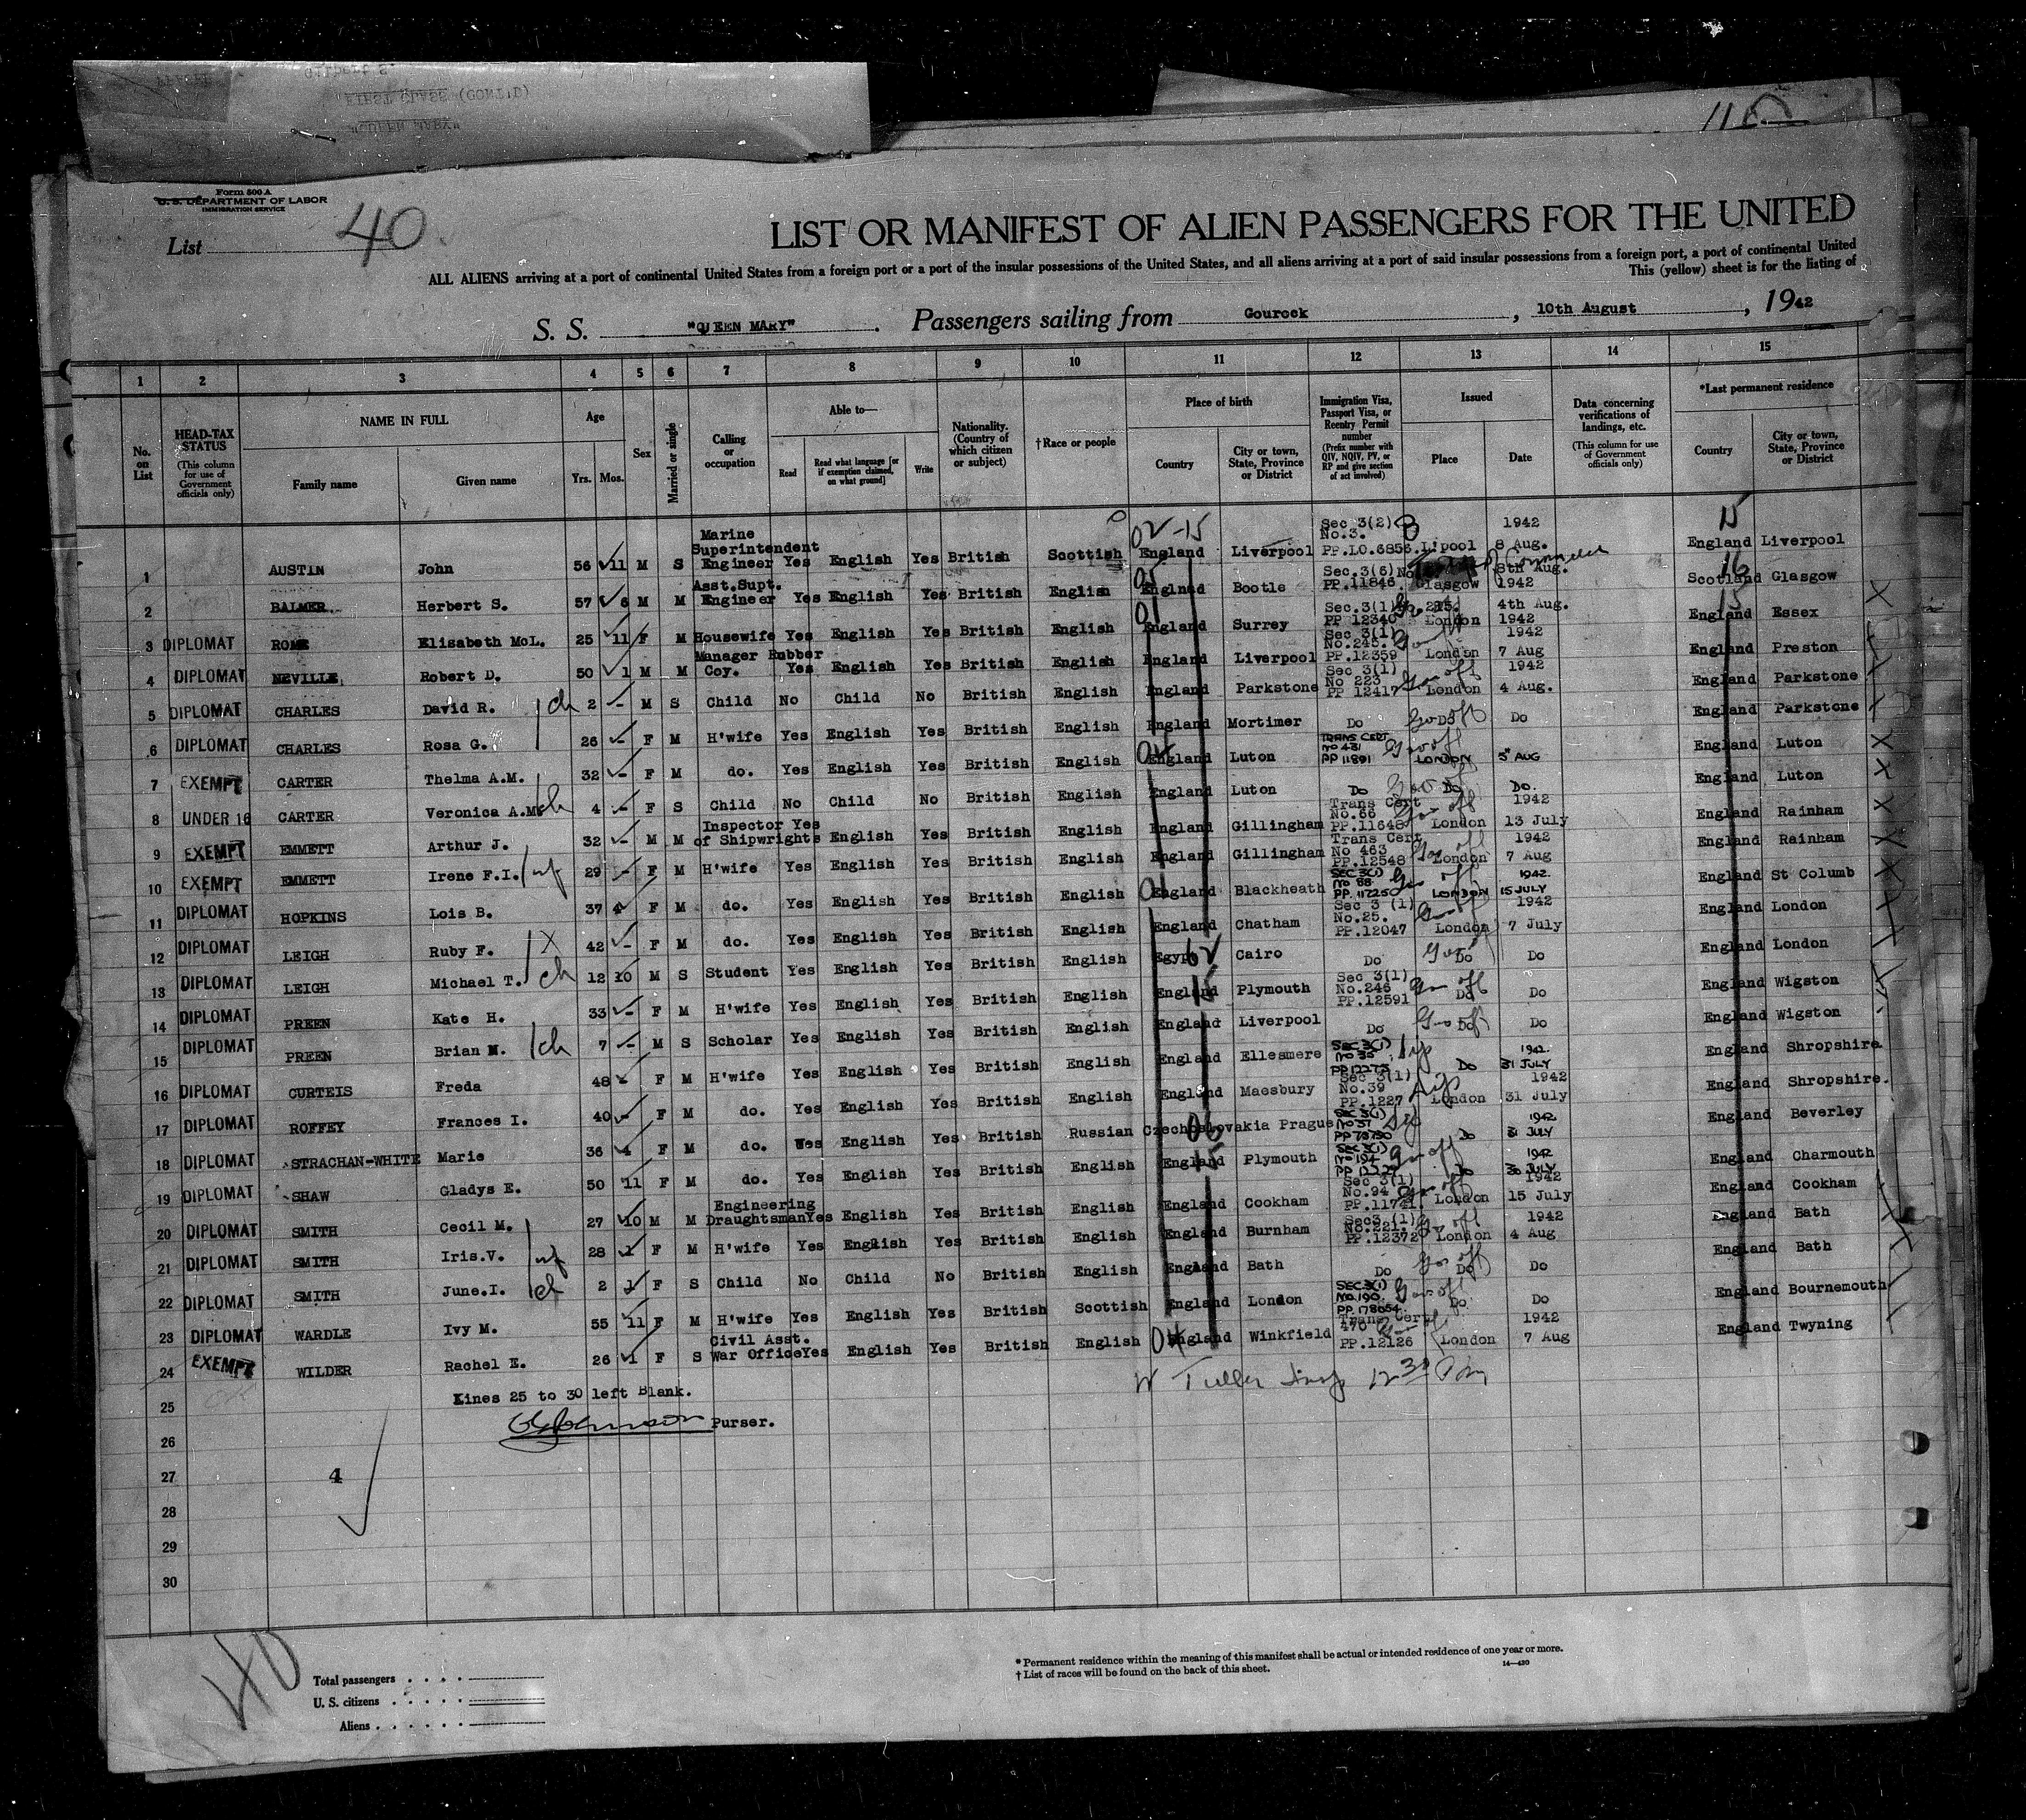 Form 500 A
U. S. DEPARTMENT OF LABOR
IMMIGRATION SERVICE
List 40
LIST OR MANIFEST OF ALIEN PASSENGERS FOR THE UNITED
ALL ALIENS arriving at a port of continental United States from a foreign port or a port of the insular possessions of the United States, and all aliens arriving at a port of said insular possessions from a foreign port, a port of continental United
This (yellow) sheet is for the listing of
S. S. "QUEEN MARY" . Passengers sailing from Gourock , 10th August , 1942
1 2 3 4 5 6 7 8 9 10 11 12 13 14 15
No. on List
HEAD-TAX STATUS (This column for use of Government officials only)
NAME IN FULL
Family name Given name
Age
Yrs. Mos.
Sex
Married or single
Calling or occupation
Able to—
Read Read what language [or if exemption claimed, on what ground] Write
Nationality. (Country of which citizen or subject)
†Race or people
Place of birth
Country City or town, State, Province or District
Immigration Visa, Passport Visa, or Reentry Permit number (Prefix number with QIV, NQIV, PV, or RP and give section of act involved)
Issued
Place Date
Data concerning verifications of landings, etc. (This column for use of Government officials only)
*Last permanent residence
Country City or town, State, Province or District
1 AUSTIN John 56 11 M S Marine Superintendent Engineer Yes English Yes British Scottish England Liverpool Sec 3(2) No.3. PP.LO.6856. L'pool 8 Aug. 1942 England Liverpool
2 BALMER. Herbert S. 57 6 M M Asst.Supt. Engineer Yes English Yes British English England Bootle Sec.3(6) No PP.11846 Glasgow 8th Aug. 1942 Scotland Glasgow
3 DIPLOMAT ROME Elisabeth McL. 25 11 F M Housewife Yes English Yes British English England Surrey Sec.3(1) PP 12340 London 4th Aug. 1942 England Essex
4 DIPLOMAT NEVILLE. Robert D. 50 1 M M Manager Rubber Coy. Yes English Yes British English England Liverpool Sec 3(1) No.245. PP.12359 London 7 Aug 1942 England Preston
5 DIPLOMAT CHARLES David R. 2 - M S Child No Child No British English England Parkstone Sec 3(1) No 223 PP 12417 London 4 Aug. 1942 England Parkstone
6 DIPLOMAT CHARLES Rosa G. 26 - F M H'wife Yes English Yes British English England Mortimer Do Do Do England Parkstone
7 EXEMPT CARTER Thelma A.M. 32 - F M do. Yes English Yes British English England Luton TRANS CERT NO 431 PP 11891 LONDON 5" AUG England Luton
8 UNDER 16 CARTER Veronica A.M. 4 - F S Child No Child No British English England Luton Do Do Do. England Luton
9 EXEMPT EMMETT Arthur J. 32 - M M Inspector of Shipwrights Yes English Yes British English England Gillingham Trans Cert No.66 PP.11648 London 13 July 1942 England Rainham
10 EXEMPT EMMETT Irene F.I. 29 - F M H'wife Yes English Yes British English England Gillingham Trans Cert No 463 PP.12548 London 7 Aug 1942 England Rainham
11 DIPLOMAT HOPKINS Lois B. 37 4 F M do. Yes English Yes British English England Blackheath SEC 3(1) NO 88 PP. 11725 LONDON 15 JULY 1942. England St Columb
12 DIPLOMAT LEIGH Ruby F. 42 - F M do. Yes English Yes British English England Chatham Sec 3 (1) No.25. PP.12047 London 7 July 1942 England London
13 DIPLOMAT LEIGH Michael T. 12 10 M S Student Yes English Yes British English Egypt Cairo Do Do Do England London
14 DIPLOMAT PREEN Kate H. 33 - F M H'wife Yes English Yes British English England Plymouth Sec 3(1) No.246 PP.12591 Do Do England Wigston
15 DIPLOMAT PREEN Brian M. 7 - M S Scholar Yes English Yes British English England Liverpool Do Do Do England Wigston
16 DIPLOMAT CURTEIS Freda 48 F M H'wife Yes English Yes British English England Ellesmere SEC 3(1) Do 31 JULY 1942. England Shropshire
17 DIPLOMAT ROFFEY Frances I. 40 - F M do. Yes English Yes British English England Maesbury Sec 3(1) No.39 PP.1227 London 31 July 1942 England Shropshire.
18 DIPLOMAT STRACHAN-WHITE Marie 36 4 F M do. Yes English Yes British Russian Czechoslovakia Prague SEC 3(1) NO 37 Do 31 JULY 1942 England Beverley
19 DIPLOMAT SHAW Gladys E. 50 11 F M do. Yes English Yes British English England Plymouth SEC 3(1) NO 194 Do 30 JULY 1942 England Charmouth
20 DIPLOMAT SMITH Cecil M. 27 10 M M Engineering Draughtsman Yes English Yes British English England Cookham Sec 3(1) No.94 PP.11741. London 15 July 1942 England Cookham
21 DIPLOMAT SMITH Iris.V. 28 1 F M H'wife Yes English Yes British English England Burnham Sec3 (1) No.221. PP.12372 London 4 Aug 1942 England Bath
22 DIPLOMAT SMITH June.I. 2 1 F S Child No Child No British English England Bath Do Do Do England Bath
23 DIPLOMAT WARDLE Ivy M. 55 11 F M H'wife Yes English Yes British Scottish England London SEC 3(1) NO.190. PP.178054. Do Do England Bournemouth
24 EXEMPT WILDER Rachel E. 26 1 F S Civil Asst. War Office Yes English Yes British English England Winkfield Trans Cert 470 PP.12126 London 7 Aug 1942 England Twyning
25 Lines 25 to 30 left Blank.
Purser.
26
27 4
28
29
30
40
Total passengers
U. S. citizens
Aliens
* Permanent residence within the meaning of this manifest shall be actual or intended residence of one year or more.
† List of races will be found on the back of this sheet.
14—430